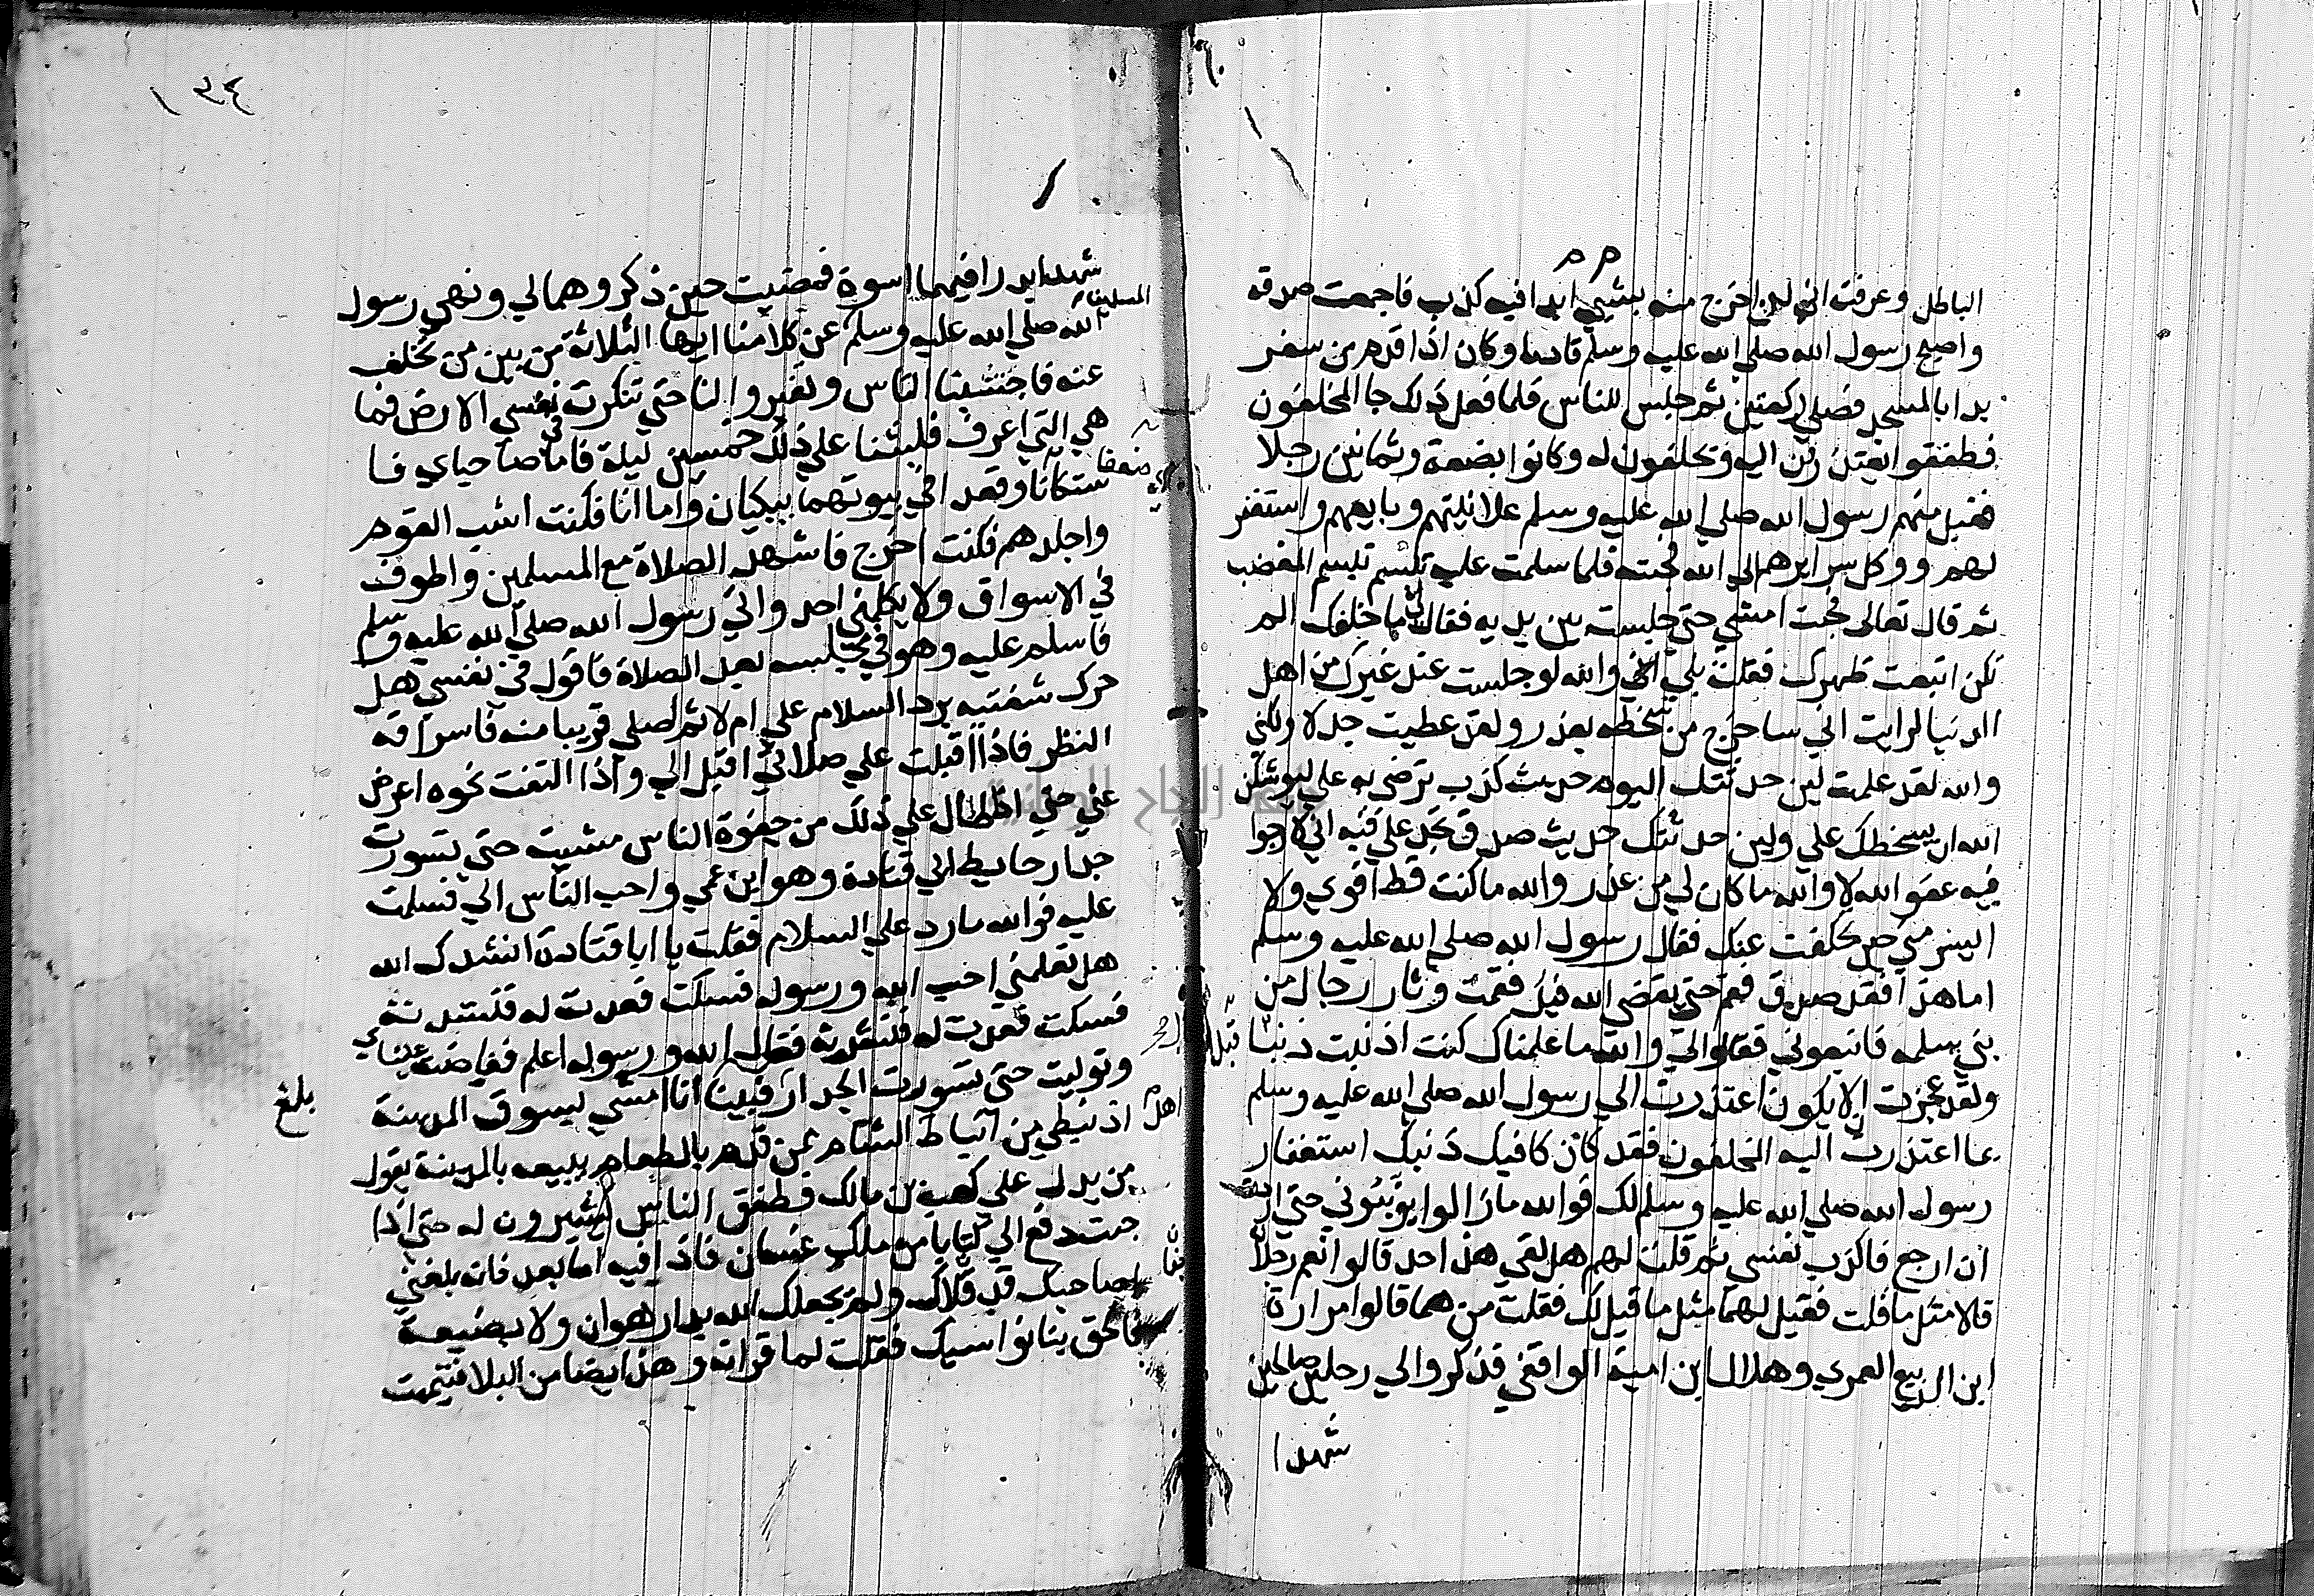 الباطل وعرفت اني لن اخرج منه بشيء ابدا فيه كذب فاجمعت صدقه
واصبح رسول الله صلي الله عليه وسلم قادما وكان اذا قدم من سفر
بدا بالمسجد فصلي ركعتين ثم جلس للناس فلما فعل ذلك جا المخلفون
فطفقوا يعتذرون اليه ويحلفون له وكانوا بضعة وثمانين رجلا
فقبل منهم رسول الله صلي الله عليه وسلم علانيتهم وبايعهم واستغفر
لهم ووكل سرايرهم الي الله فجيته فلما سلمت عليه تبسم تبسم المغضب
ثم قال تعالى فجيت امشي حتي جلست بين يديه فقال لي ما خلفك الم
تكن ابتعت ظهرك فقلت بلي اني والله لو جلست عند غيرك من اهل
الدنيا لرايت اني ساخرج من سخطه بعذر ولقد عطيت جدلا ولكني
والله لقد علمت لين حدثتك اليوم حديث كذب ترضي به علي ليوشكن
الله ان يسخطك علي ولين حدثتك حديث صدق تجد علي فيه اني لارجوا
فيه عفو الله لا والله ما كان لي من عذر والله ما كنت قط اقوي ولا
ايسر مني حين تخلفت عنك فقال رسول الله صلي الله عليه وسلم
اما هذا فقد صدق فقم حتي يقضي الله فيك فقمت وثار رجال من
بني سلمه فاتبعوني فقالوا لي والله ما علمناك كنت اذنبت ذنبا قبل
ولقد عجزت الا يكون اعتذرت الي رسول الله صلي الله عليه وسلم
بما اعتذرت اليه المخلفون فقد كان كافيك ذنبك استغفار
رسول الله صلي الله عليه وسلم لك فوالله ما زالوا يونبوني حتي اردت
ان ارجع فاكذب نفسي ثم قلت لهم هل لقي هذا احد قالوا نعم رجلا
قالا مثل ما قلت فقيل لهما مثل ما قيل لك فقلت من هما قالوا مرارة
ابن الربيع العمري وهلال ابن امية الواقفي فذكروا لي رجلين صالحين
شهدا
١٣٤
شهدا بدرا فيهما اسوة فمضيت حين ذكروهما لي ونهي رسول
الله صلي الله عليه وسلم المسلمين عن كلامنا ايها الثلاثة من بين من تخلف
عنه فاجتنبنا الناس وتغيروا لنا حتي تنكرت في نفسي الارض فما
هي التي اعرف فلبثنا علي ذلك خمسين ليلة فاما صاحباي فا
ستكانا وقعدا في بيوتهما يبكيان واما انا فكنت اشب القوم
واجلدهم فكنت اخرج فاشهد الصلاة مع المسلمين واطوف
في الاسواق ولا يكلمني احد واتي رسول الله صلي الله عليه وسلم
فاسلم عليه وهو في مجلسه بعد الصلاة فاقول في نفسي هل
حرك شفتيه برد السلام علي ام لا ثم اصلي قريبا منه فاسارقه
النظر فاذا اقبلت علي صلاتي اقبل الي واذا التفت نحوه اعرض
عني حتي اذا طال علي ذلك من جفوة الناس مشيت حتي تسورت
جدار حايط ابي قتادة وهو ابن عمي واحب الناس الي فسلمت
عليه فوالله ما رد علي السلام فقلت يا ابا قتادة انشدك الله
هل تعلمني احب الله ورسوله فسكت فعدت له فنشدته
فسكت فعدت له فنشدته فقال الله ورسوله اعلم ففاضت عيناي
وتوليت حتي تسورت الجدار فبينا انا امشي بسوق المدينة
اذ نبطي من انباط اهل الشام ممن قدم بالطعام يبيعه بالمدينة يقول
من يدل علي كعب بن مالك فطفق الناس يشيرون له حتي اذا
جت دفع الي كتابا من ملك غسان فاذا فيه اما بعد فانه بلغني
صاحبك قد قلاك ولم يجعلك الله بدار هوان ولا بضيعة
فالحق بنا نواسيك فقلت لما قراته وهذا ايضا من البلا فتيممت
بلغ